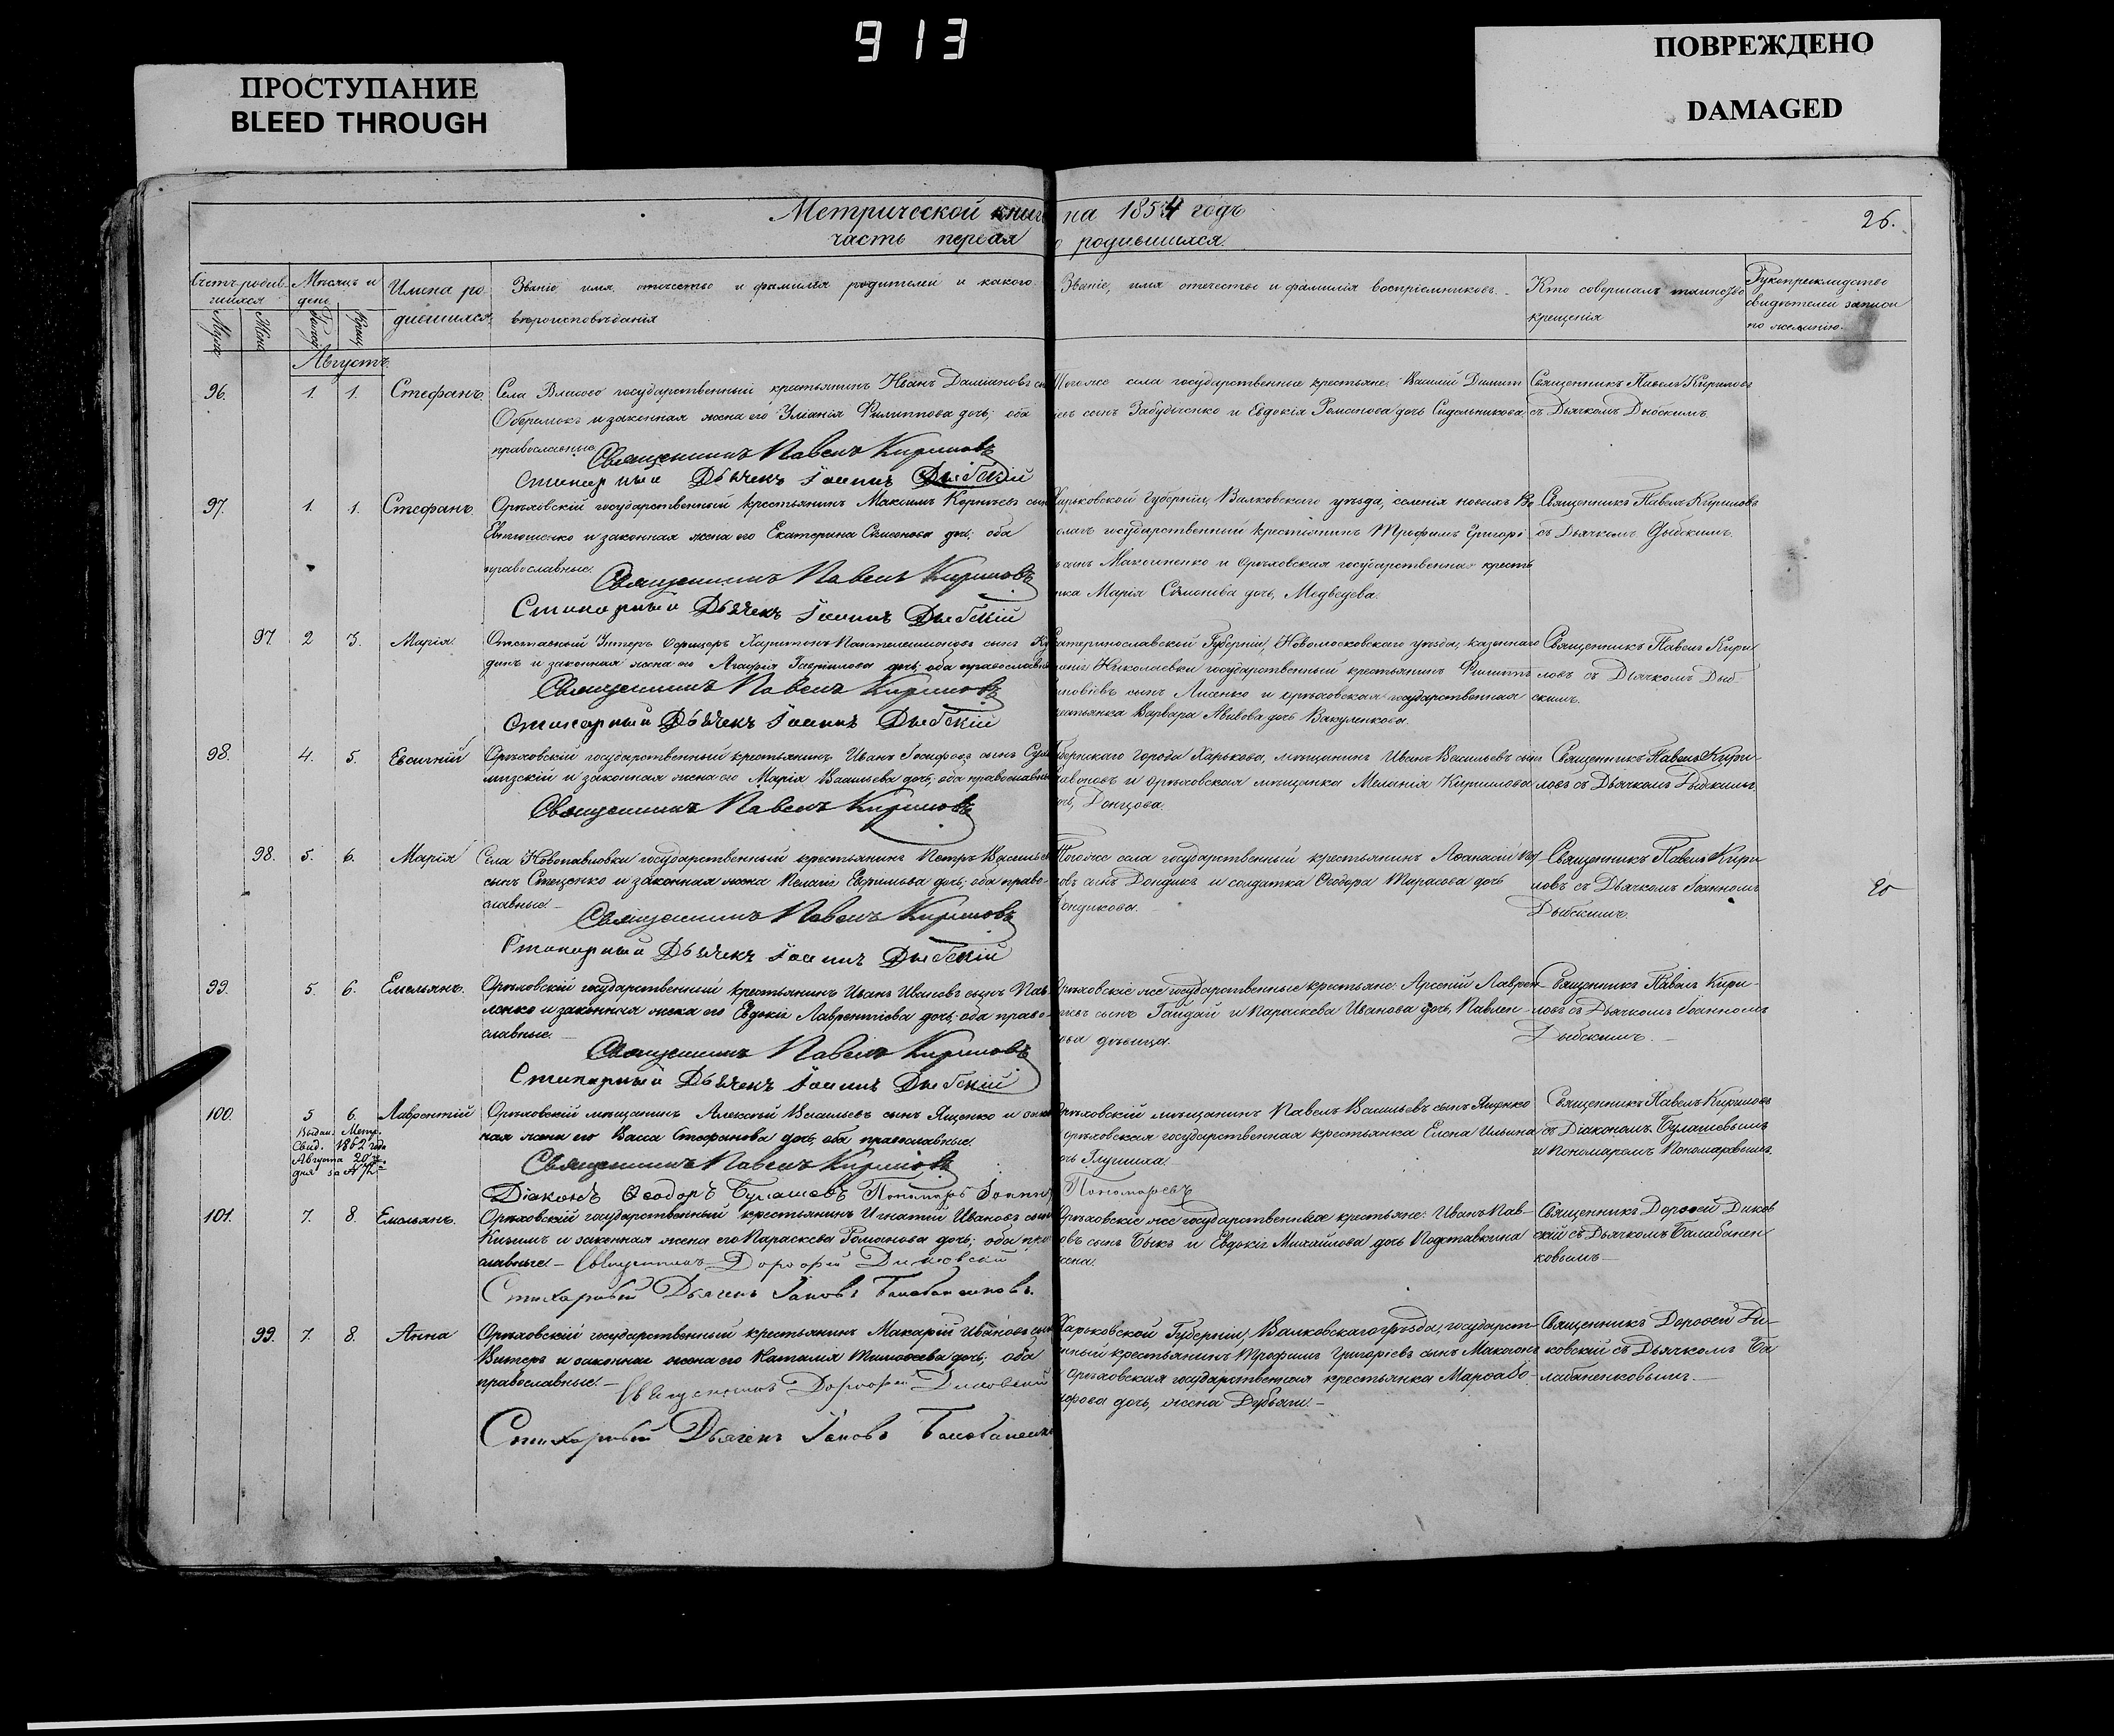 913
ПРОСТУПАНИЕ
BLEED THROUGH
ПОВРЕЖДЕНО
DAMAGED
Метрической книг на 1854 годъ
часть первая о родившихся.
26.
Имена ро-
дившихся.
Званіе имя, отчество и фамилія родителей и какого
вѣроисповѣданія
Званіе, имя отчество и фамилія воспріемниковъ.
Кто совершалъ таинство
крещенія
Рукоприкладство
свидѣтелей записи
по желанію.
Августъ.
96. 1. 1. Стефанъ.
Села государственный крестьянинъ Иванъ Даміановъ
и законная жена его Филиппова дочь; оба
православные.
Священникъ Павелъ Кириловъ
Стихарный Дьячекъ Іоаннъ Дыбскій
Тогоже села государственные крестьяне: Василій Димит
сынъ и Евдокія Романова дочь Сидельникова
Священникъ Павелъ Кириловъ
съ Дьячкомъ Дыбскимъ.
97. 1. 1. Стефанъ.
Орѣховскій государственный крестьянинъ Максимъ
и законная жена его Екатерина Симеонова дочь; оба
православные.
Священникъ Павелъ Кириловъ
Стихарный Дьячекъ Іоаннъ Дыбскій
Харьковской Губерніи, Валковскаго уѣзда, селенія новыхъ Во
государственный крестьянинъ Трофимъ Григорі
сынъ и Орѣховская государственная кресть
нка Марія Симонова дочь, Медведева.
Священникъ Павелъ Кириловъ
съ Дьячкомъ Дыбскимъ.
97 2 3. Марія.
Отставный Унтеръ Офицеръ Харитонъ Пантелеимоновъ сынъ
и законная жена его Агафія Гавріилова дочь; оба православные
Священникъ Павелъ Кириловъ
Стихарный Дьячекъ Іоаннъ Дыбскій
Екатеринославской Губерніи, Новомосковскаго уѣзда, казеннаго
Николаевки государственный крестьянинъ Филиппъ
сынъ Лисенко и орѣховская государственная
крестьянка Варвара дочь Вакуленкова.
Священникъ Павелъ Кири
ловъ съ Дьячкомъ Дыб-
скимъ.
98. 4. 5. Евсигній
Орѣховскій государственный крестьянинъ Иванъ Іосифовъ сынъ
и законная жена его Марія Васильева дочь, оба православные
Священникъ Павелъ Кириловъ
Губернскаго города Харькова, мѣщанинъ Иванъ Васильевъ сынъ
и орѣховская мѣщанка Меланія Кирилова
дочь, Донцова.
Священникъ Павелъ Кири-
ловъ съ Дьячкомъ Дыбскимъ
98. 5. 6. Марія
Села Новопавловки государственный крестьянинъ Петръ Васильев
сынъ Стеценко и законная жена Пелагія дочь; оба право-
славные.
Священникъ Павелъ Кириловъ
Стихарный Дьячекъ Іоаннъ Дыбскій
Тогоже села государственный крестьянинъ Афанасій
сынъ Дондикъ и солдатка Ѳеодора Тарасова дочь
Дондикова.
Священникъ Павелъ Кири
ловъ съ Дьячкомъ Іоанномъ
Дыбскимъ.
99. 5. 6. Емельянъ.
Орѣховскій государственный крестьянинъ Иванъ Ивановъ сынъ Пав
ленко и законная жена его Евдокія Лаврентіева дочь; оба право-
славные.
Священникъ Павелъ Кириловъ
Стихарный Дьячекъ Іоаннъ Дыбскій
Орѣховскіе же государственные крестьяне: Арсеній Лаврен-
тіевъ сынъ Гайдай и Параскева Иванова дочь, Павлен-
кова дѣвица.
Священникъ Павелъ Кири-
ловъ съ Дьячкомъ Іоанномъ
Дыбскимъ.
100. 5 6. Лаврентій
Выдан. Метр.
Свид. 1862 года
Августа 20
дня за №
Орѣховскій мѣщанинъ Алексѣй Васильевъ сынъ Ященко и закон
ная жена его Васса Стефанова дочь, оба православные.
Священникъ Павелъ Кириловъ
Діаконъ Ѳеодоръ Булашевъ Пономарь Іоаннъ Пономаревъ
Орѣховскій мѣщанинъ Павелъ Васильевъ сынъ Ященко
орѣховская государственная крестьянка Елена Ильина
дочь
Священникъ Павелъ Кириловъ
съ Діакономъ Булашевымъ
и Пономаремъ Пономаревымъ.
101. 7. 8. Емельянъ.
Орѣховскій государственный крестьянинъ Игнатій Ивановъ сынъ
и законная жена его Параскева Романова дочь; оба пра
славные. Священникъ Дорофей Диковскій
Стихарный Дьячекъ Іаковъ Балабаненковъ.
Орѣховскіе же государственные крестьяне: Иванъ Пав-
овъ сынъ Быкъ и Евдокія Михайлова дочь Подставкина
жена.
Священникъ Дорофей Диков
скій съ Дьячкомъ Балабанен
ковымъ
99. 7. 8. Анна
Орѣховскій государственный крестьянинъ Макарій Ивановъ сынъ
и законная жена его Наталія Тимофеева дочь; оба
православные. Священникъ Дорофей Диковскій
Стихарный Дьячекъ Іаковъ Балабаненк
Харьковской Губерніи, Валковскаго уѣзда, государст-
нный крестьянинъ Трофимъ Григоріевъ сынъ
Орѣховская государственная крестьянка Марфа
дочь, жена Дубяги.
Священникъ Дорофей Ди-
ковскій съ Дьячкомъ Ба
лабаненковымъ.